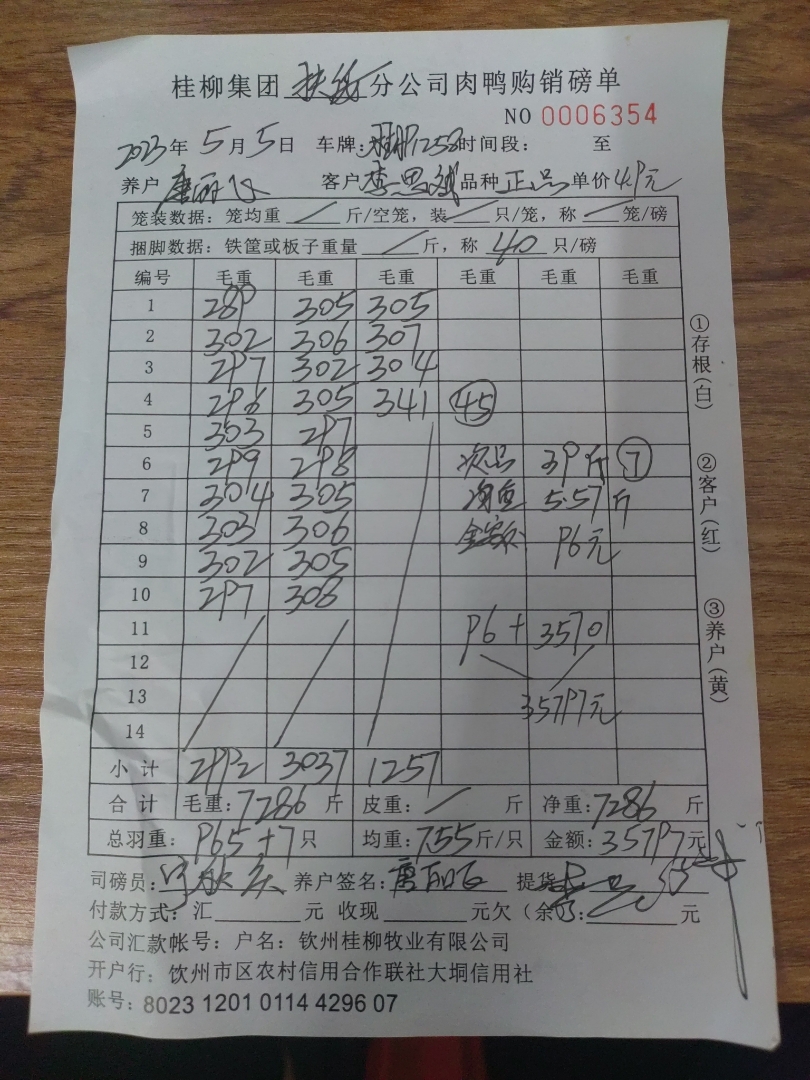 桂柳集团 扶绥 分公司肉鸭购销磅单
NO 0006354
2023年 5月5日 车牌: P1258 时间段: 至
养户 唐丽飞 客户 李思斌 品种 正品 单价 4.9元
笼装数据: 笼均重 / 斤/空笼, 装 / 只/笼, 称 / 笼/磅
捆脚数据: 铁筐或板子重量 / 斤, 称 40 只/磅
编号 毛重 毛重 毛重 毛重 毛重 毛重
1 289 305 305
2 302 306 307
3 297 302 304
4 296 305 341 45
5 303 297
6 299 298 次品 39斤 7
7 304 305 5.57斤
8 303 306 金额 96元
9 302 305
10 297 308
11 96 + 35701
12
13 35797元
14
小计 2992 3037 1257
合计 毛重: 7286 斤 皮重: / 斤 净重: 7286 斤
总羽重: 965+7 只 均重: 7.55 斤/只 金额: 35797元
司磅员: 养户签名: 唐 提货
付款方式: 汇 元 收现 元欠(余 元
公司汇款帐号: 户名: 钦州桂柳牧业有限公司
开户行: 钦州市区农村信用合作联社大垌信用社
账号: 8023 1201 0114 4296 07
①存根(白)
②客户(红)
③养户(黄)